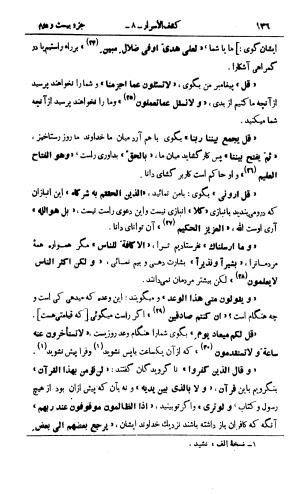 ۱۳۶ کشف‌الاسرار ـ ۸ ـ جزء بیست و دوم
ایشان گوی: ] ما یا شما « لعلی هدیً اوفی ضلال مبین (۲۴) » برراه راستیم یا در
گمراهی آشکارا.
« قل » پیغامبر من بگوی، « لاتسئلون عما اجرمنا » و شما را نخواهند پرسید
از آنچه ما کنیم از بدی، « و لانسئل عما تعملون (۲۵) » وما را نخواهند پرسید از آنچه
شما میکنید.
« قل یجمع بیننا ربنا » بگوی با هم آرد میان ما خداوند ما روز رستاخیز،
« ثم یفتح بیننا » پس کار گشاید میان ما، « بالحق » بداوری راست، « وهو الفتاح
العلیم (۲۶) » و او حاکم است کاربر گشای دانا.
« قل ارونی » بگوی: بامن نمائید، « الذین الحقتم به شرکاء » این انبازان
که درو می‌بندید بانبازی « کلا » انبازی نیست و این دعوی راست نیست، « بل هو الله »
آری اوست الله، « العزیز الحکیم (۲۷) » آن توانای دانا.
« و ما ارسلناک » نفرستادیم ترا، « الا کافة للناس » مگر همواره همهٔ
مردمانرا، « بشیراً ونذیراً » بشارت دهی و بیم نمائی، « و لکن اکثر الناس
لایعلمون (۲۸) » لکن بیشتر مردمان نمی‌دانند.
« و یقولون متی هذا الوعد » و میگویند: این وعد که میدهی کی است و
چه هنگام است؟ « ان کنتم صادقین (۲۹) » اگر راست میگوئی [ که قیامتی هست ].
« قل لکم میعاد یوم » بگوی شمارا هنگام وعد روزیست. « لاتستأخرون عنه
ساعة ولاتستقدمون (۳۰) » که از آن یکساعت باپس نشوید (۱) وفرا پیش نشوید (۱).
« و قال الذین کفروا » نا گرویدگان گفتند: « لن نؤمن بهذا القرآن »
بنگرویم باین قرآن، « و لا بالذی بین یدیه » و نه بآن که پیش ازان بود از هیچ
رسول و کتاب، « و لوتری » واگر توبینید، « اذ الظالمون موقوفون عند ربهم »
آنگه که کافران باز داشته باشند نزدیک خداوند ایشان، « یرجع بعضهم الی بعض
۱ ـ نسخهٔ الف ، نشید .